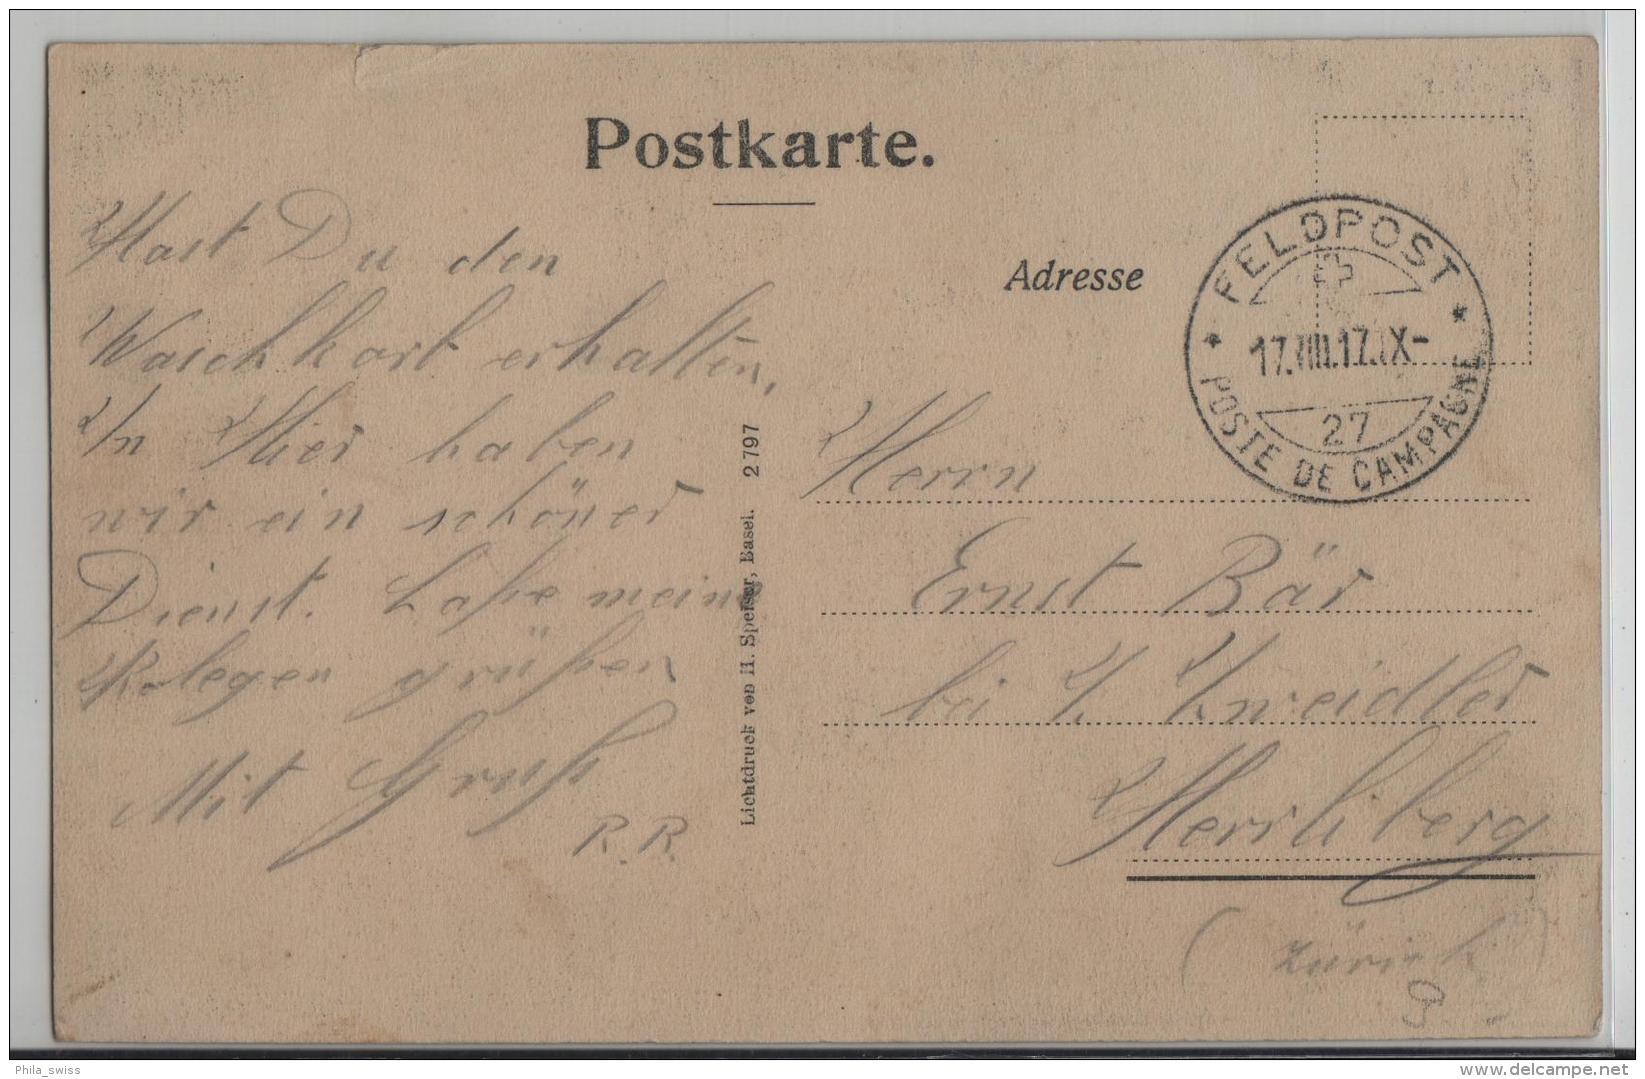 Postkarte.
Hast Du den
Waschkorb erhalten,
In Hier haben
wir ein schöner
Dienst. Laße meine
Kolegen grüßen
Mit Gruß
R. R.
Lichtdruck von H. Speiser, Basel. 2797
Adresse
FELDPOST
17.VIII.17.IX-
27
POSTE DE CAMPAGNE
Herrn
Ernst Bär
bei
Zweidler
Herrliberg
(Zürich)
Phila_swiss
delcampe.net